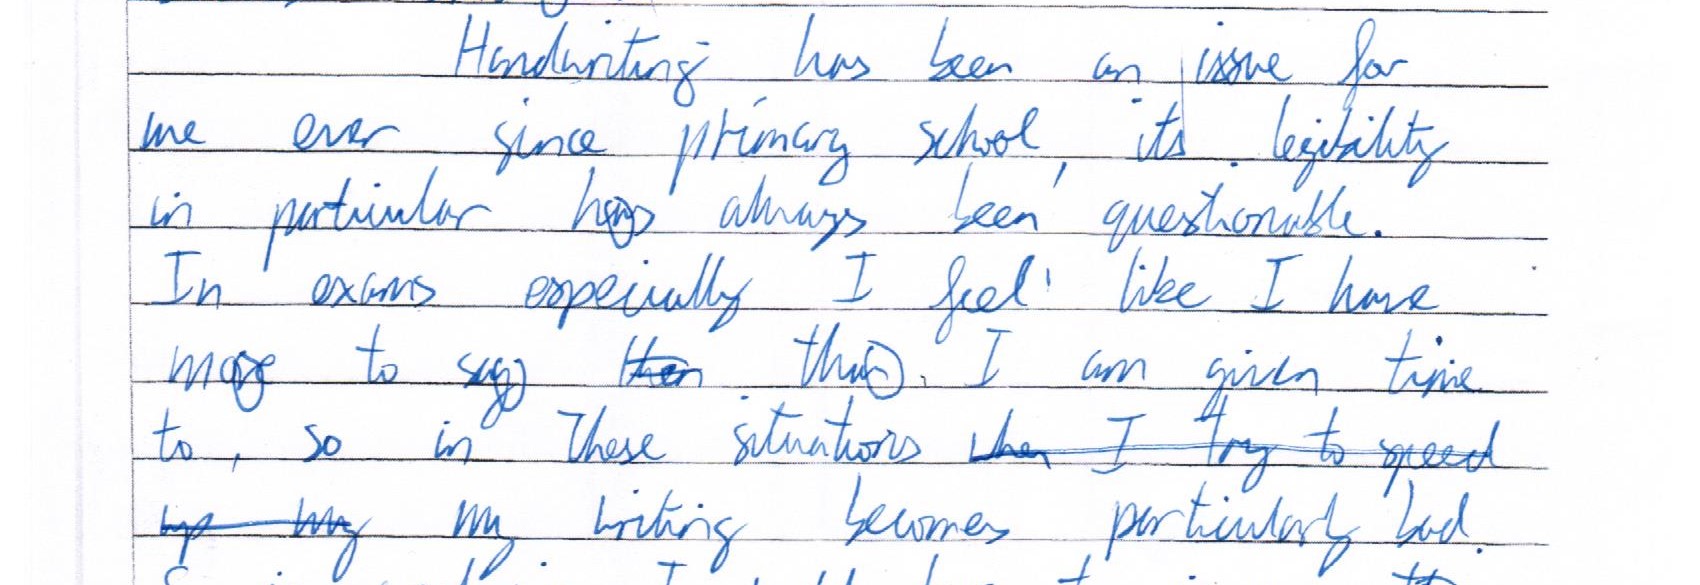 Handwriting has been an issue for
me ever since primary school, its legibility
in particular has always been questionable.
In exams especially I feel like I have
more to say then than I am given time
to, so in these situations when I try to speed
up my my writing becomes particularly bad.